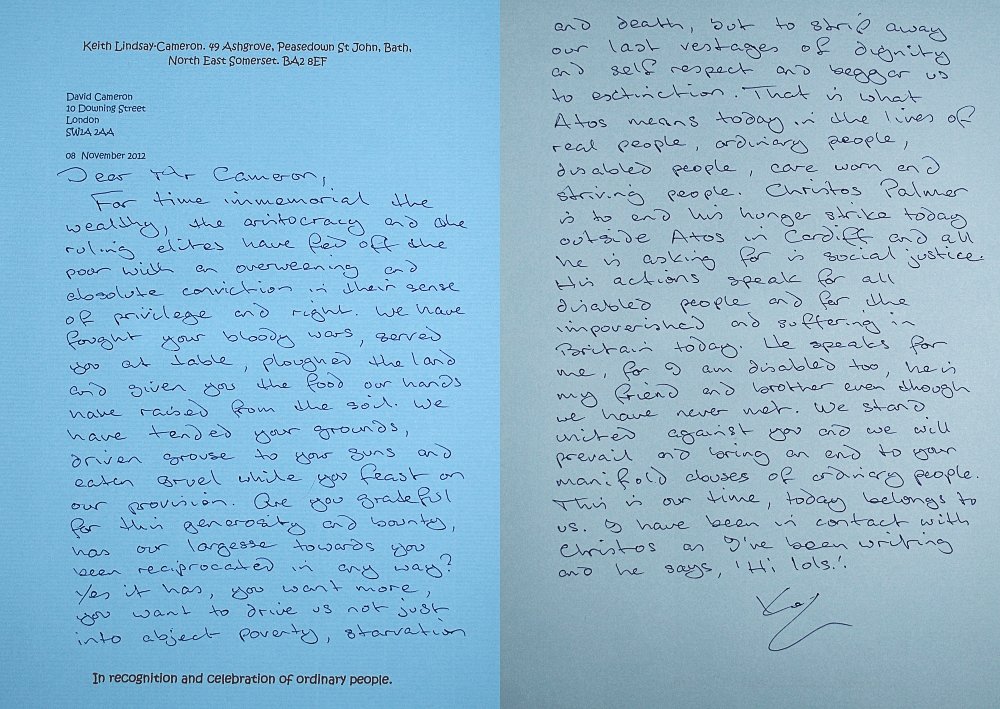 Keith Lindsay-Cameron. 49 Ashgrove, Peasedown St John, Bath,
North East Somerset. BA2 8EF
David Cameron
10 Downing Street
London
SW1A 2AA
08 November 2012
Dear Mr Cameron,
For time immemorial the
wealthy, the aristocracy and the
ruling elites have fed off the
poor with an overweening and
absolute conviction in their sense
of privilege and right. We have
fought your bloody wars, served
you at table, ploughed the land
and given you the food our hands
have raised from the soil. We
have tended your grounds,
driven grouse to your guns and
eaten gruel while you feast on
our provision. Are you grateful
for this generosity and bounty,
has our largesse towards you
been reciprocated in any way?
Yes it has, you want more,
you want to drive us not just
into abject poverty, starvation
In recognition and celebration of ordinary people.
and death, but to strip away
our last vestages of dignity
and self respect and beggar us
to extinction. That is what
Atos means today in the lives of
real people, ordinary people,
disabled people, care worn and
striving people. Christos Palmer
is to end his hunger strike today
outside Atos in Cardiff and all
he is asking for is social justice.
His actions speak for all
disabled people and for the
impoverished and suffering in
Britain today. He speaks for
me, for I am disabled too, he is
my friend and brother even though
we have never met. We stand
united against you and we will
prevail and bring an end to your
manifold abuses of ordinary people.
This is our time, today belongs to
us. I have been in contact with
Christos as I've been writing
and he says, 'Hi lols.'.